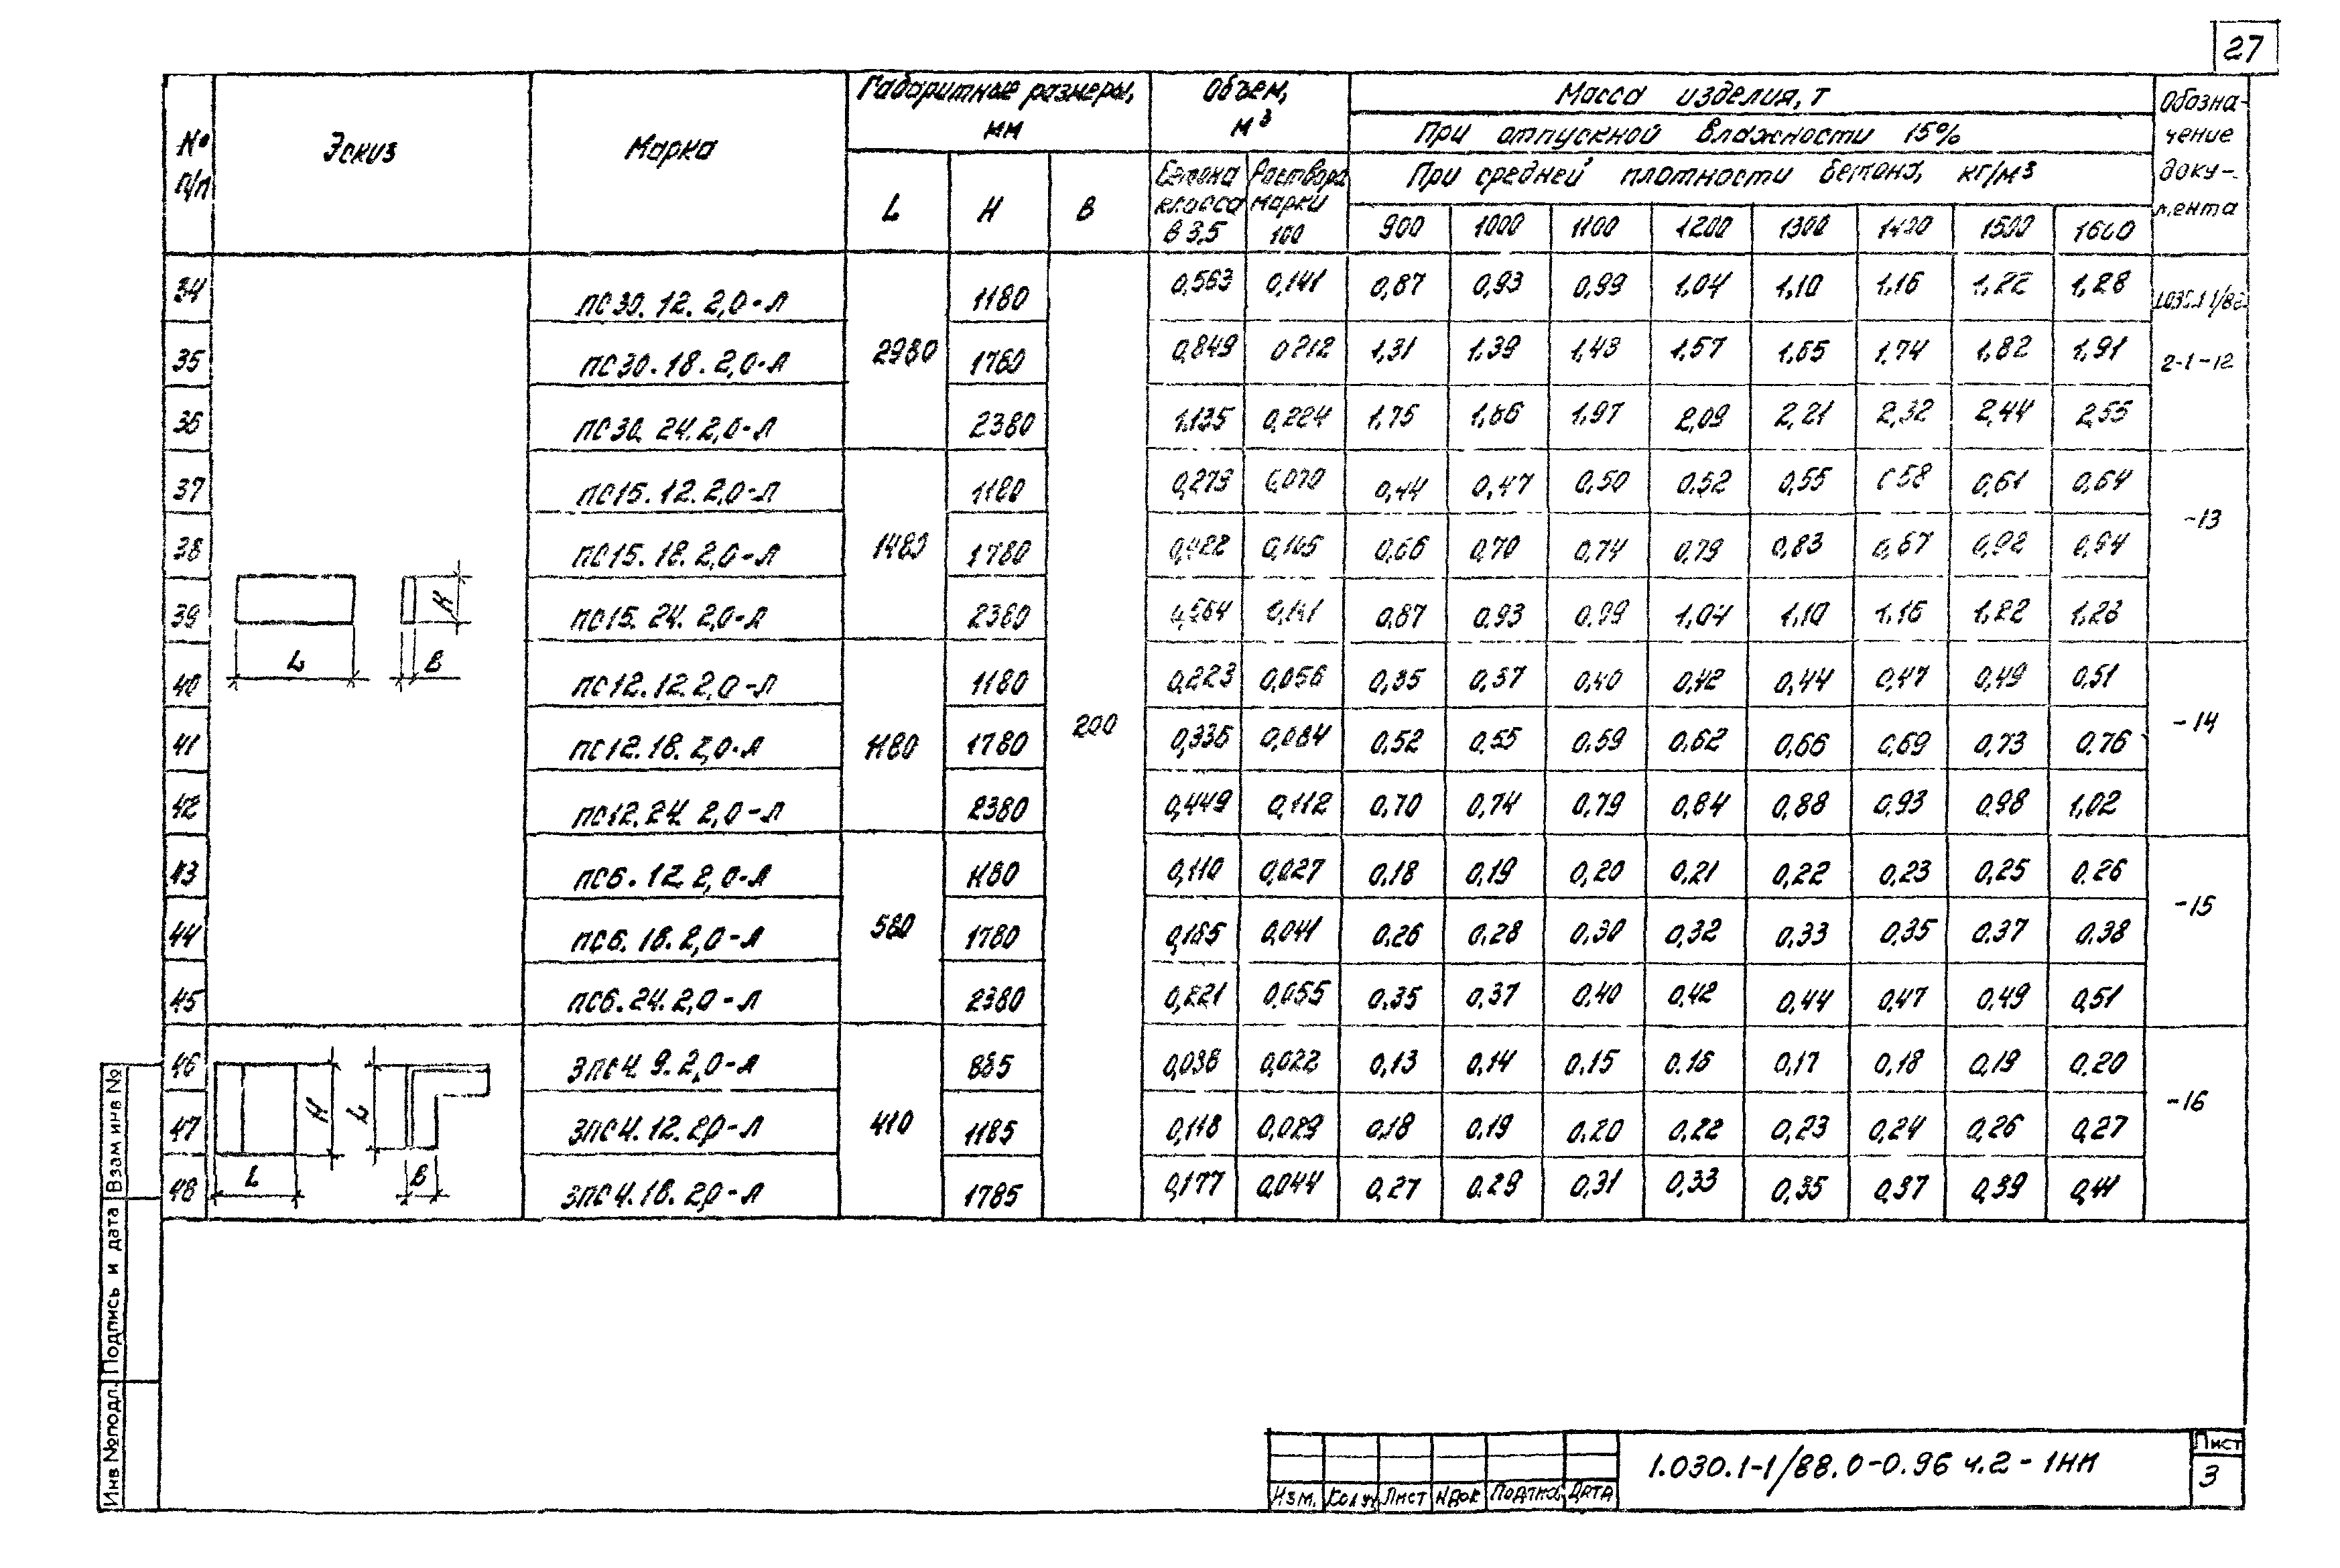 27
№ п/п Эскиз Марка Габаритные размеры, мм Объем, м³ Масса изделия, т Обозна-чение доку-мента
При отпускной влажности 15%
L H B Бетона класса В 3,5 Раствора марки 100 При средней плотности бетона, кг/м³
900 1000 1100 1200 1300 1400 1500 1600
34 ПС30.12.2,0-Л 2980 1180 200 0,563 0,141 0,87 0,93 0,99 1,04 1,10 1,16 1,22 1,28
35 ПС30.18.2,0-Л 1780 0,849 0,212 1,31 1,39 1,48 1,57 1,65 1,74 1,82 1,91 2-1-12
36 ПС30.24.2,0-Л 2380 1,135 0,284 1,75 1,86 1,97 2,09 2,21 2,32 2,44 2,55
37 ПС15.12.2,0-Л 1480 1180 0,279 0,070 0,44 0,47 0,50 0,52 0,55 0,58 0,61 0,64 -13
38 ПС15.18.2,0-Л 1780 0,422 0,105 0,66 0,70 0,74 0,79 0,83 0,87 0,92 0,94
39 ПС15.24.2,0-Л 2380 0,564 0,141 0,87 0,93 0,99 1,04 1,10 1,16 1,22 1,28
L B H
40 ПС12.12.2,0-Л 1180 1180 0,223 0,056 0,35 0,37 0,40 0,42 0,44 0,47 0,49 0,51 -14
41 ПС12.18.2,0-Л 1780 0,336 0,084 0,52 0,55 0,59 0,62 0,66 0,69 0,73 0,76
42 ПС12.24.2,0-Л 2380 0,449 0,112 0,70 0,74 0,79 0,84 0,88 0,93 0,98 1,02
43 ПС6.12.2,0-Л 580 1180 0,110 0,027 0,18 0,19 0,20 0,21 0,22 0,23 0,25 0,26 -15
44 ПС6.18.2,0-Л 1780 0,165 0,041 0,26 0,28 0,30 0,32 0,33 0,35 0,37 0,38
45 ПС6.24.2,0-Л 2380 0,221 0,055 0,35 0,37 0,40 0,42 0,44 0,47 0,49 0,51
46 3ПС4.9.2,0-Л 410 885 0,022 0,13 0,14 0,15 0,16 0,17 0,18 0,19 0,20 -16
47 3ПС4.12.2,0-Л 1185 0,118 0,029 0,18 0,19 0,20 0,22 0,23 0,24 0,26 0,27
48 3ПС4.18.2,0-Л 1785 0,177 0,044 0,27 0,29 0,31 0,33 0,35 0,37 0,39 0,41
H L
L B
Взам инв №
Подпись и дата
Инв № подл.
Изм. Кол.уч Лист №док Подпись Дата
1.030.1-1/88.0-0.96 ч.2-1НИ
Лист
3